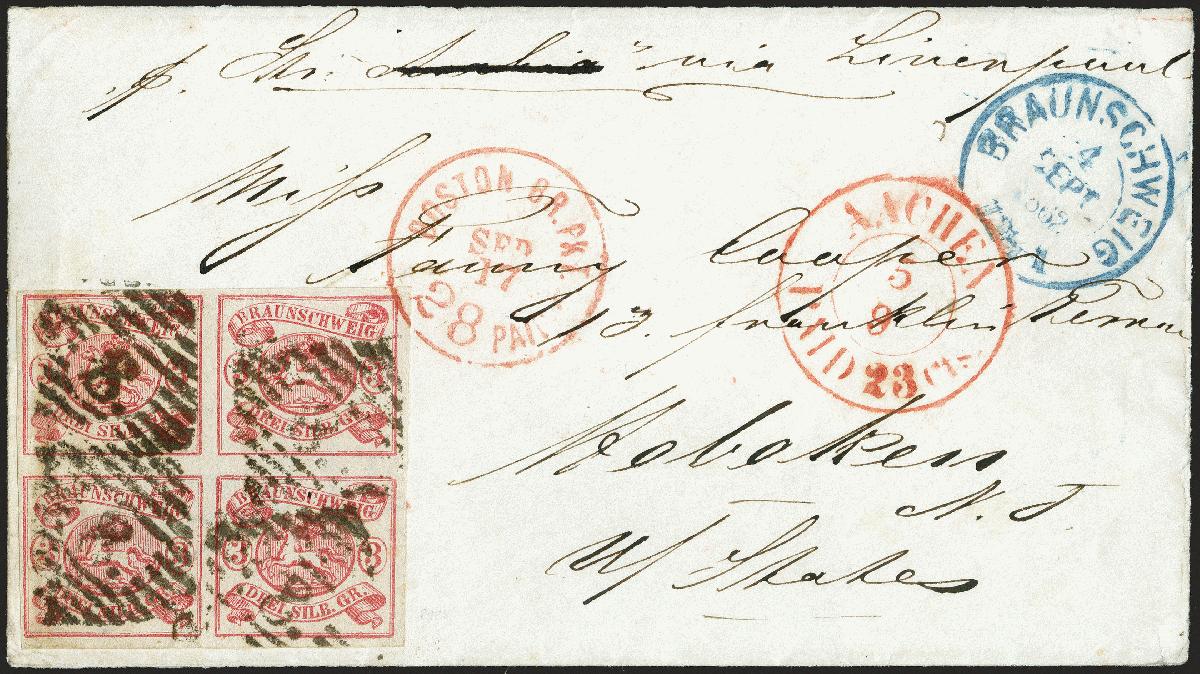 p. Str. "Arabia" via Liverpool
Miss
Fanny Cooper
13. Franklin Terrace
Hoboken
N. J.
U/ States
BRAUNSCHWEIG
4
SEPT
1862
BOSTON BR. PKT.
SEP
17
28 PAID
AACHEN
5
9
PAID 23 Cts.
BRAUNSCHWEIG
3
DREI SILB. GR.
BRAUNSCHWEIG
3
DREI SILB. GR.
BRAUNSCHWEIG
3 3
DREI SILB. GR.
BRAUNSCHWEIG
3 3
DREI SILB. GR.
8
8
8